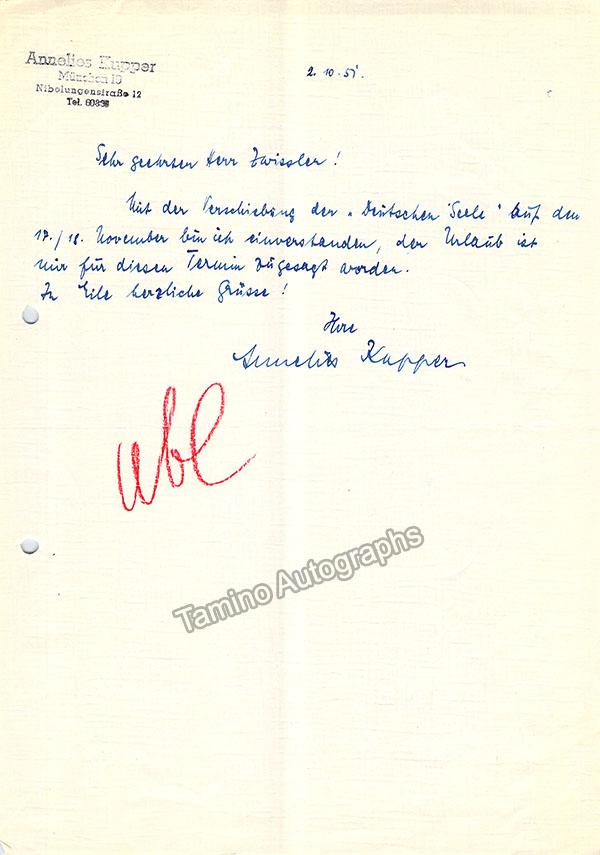 Annelies Kupper
München 19
Nibelungenstraße 12
Tel. 60898
2.10.51.
Sehr geehrter Herr Zwissler!
Mit der Verschiebung der „Deutschen Seele" auf den
17./18. November bin ich einverstanden, der Urlaub ist
mir für diesen Termin zugesagt worden.
In Eile herzliche Grüsse!
Ihre
Annelies Kupper
abl
Tamino Autographs